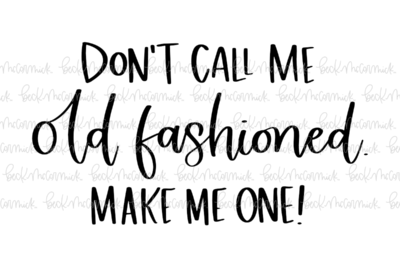 DON'T CALL ME
old fashioned.
MAKE ME ONE!